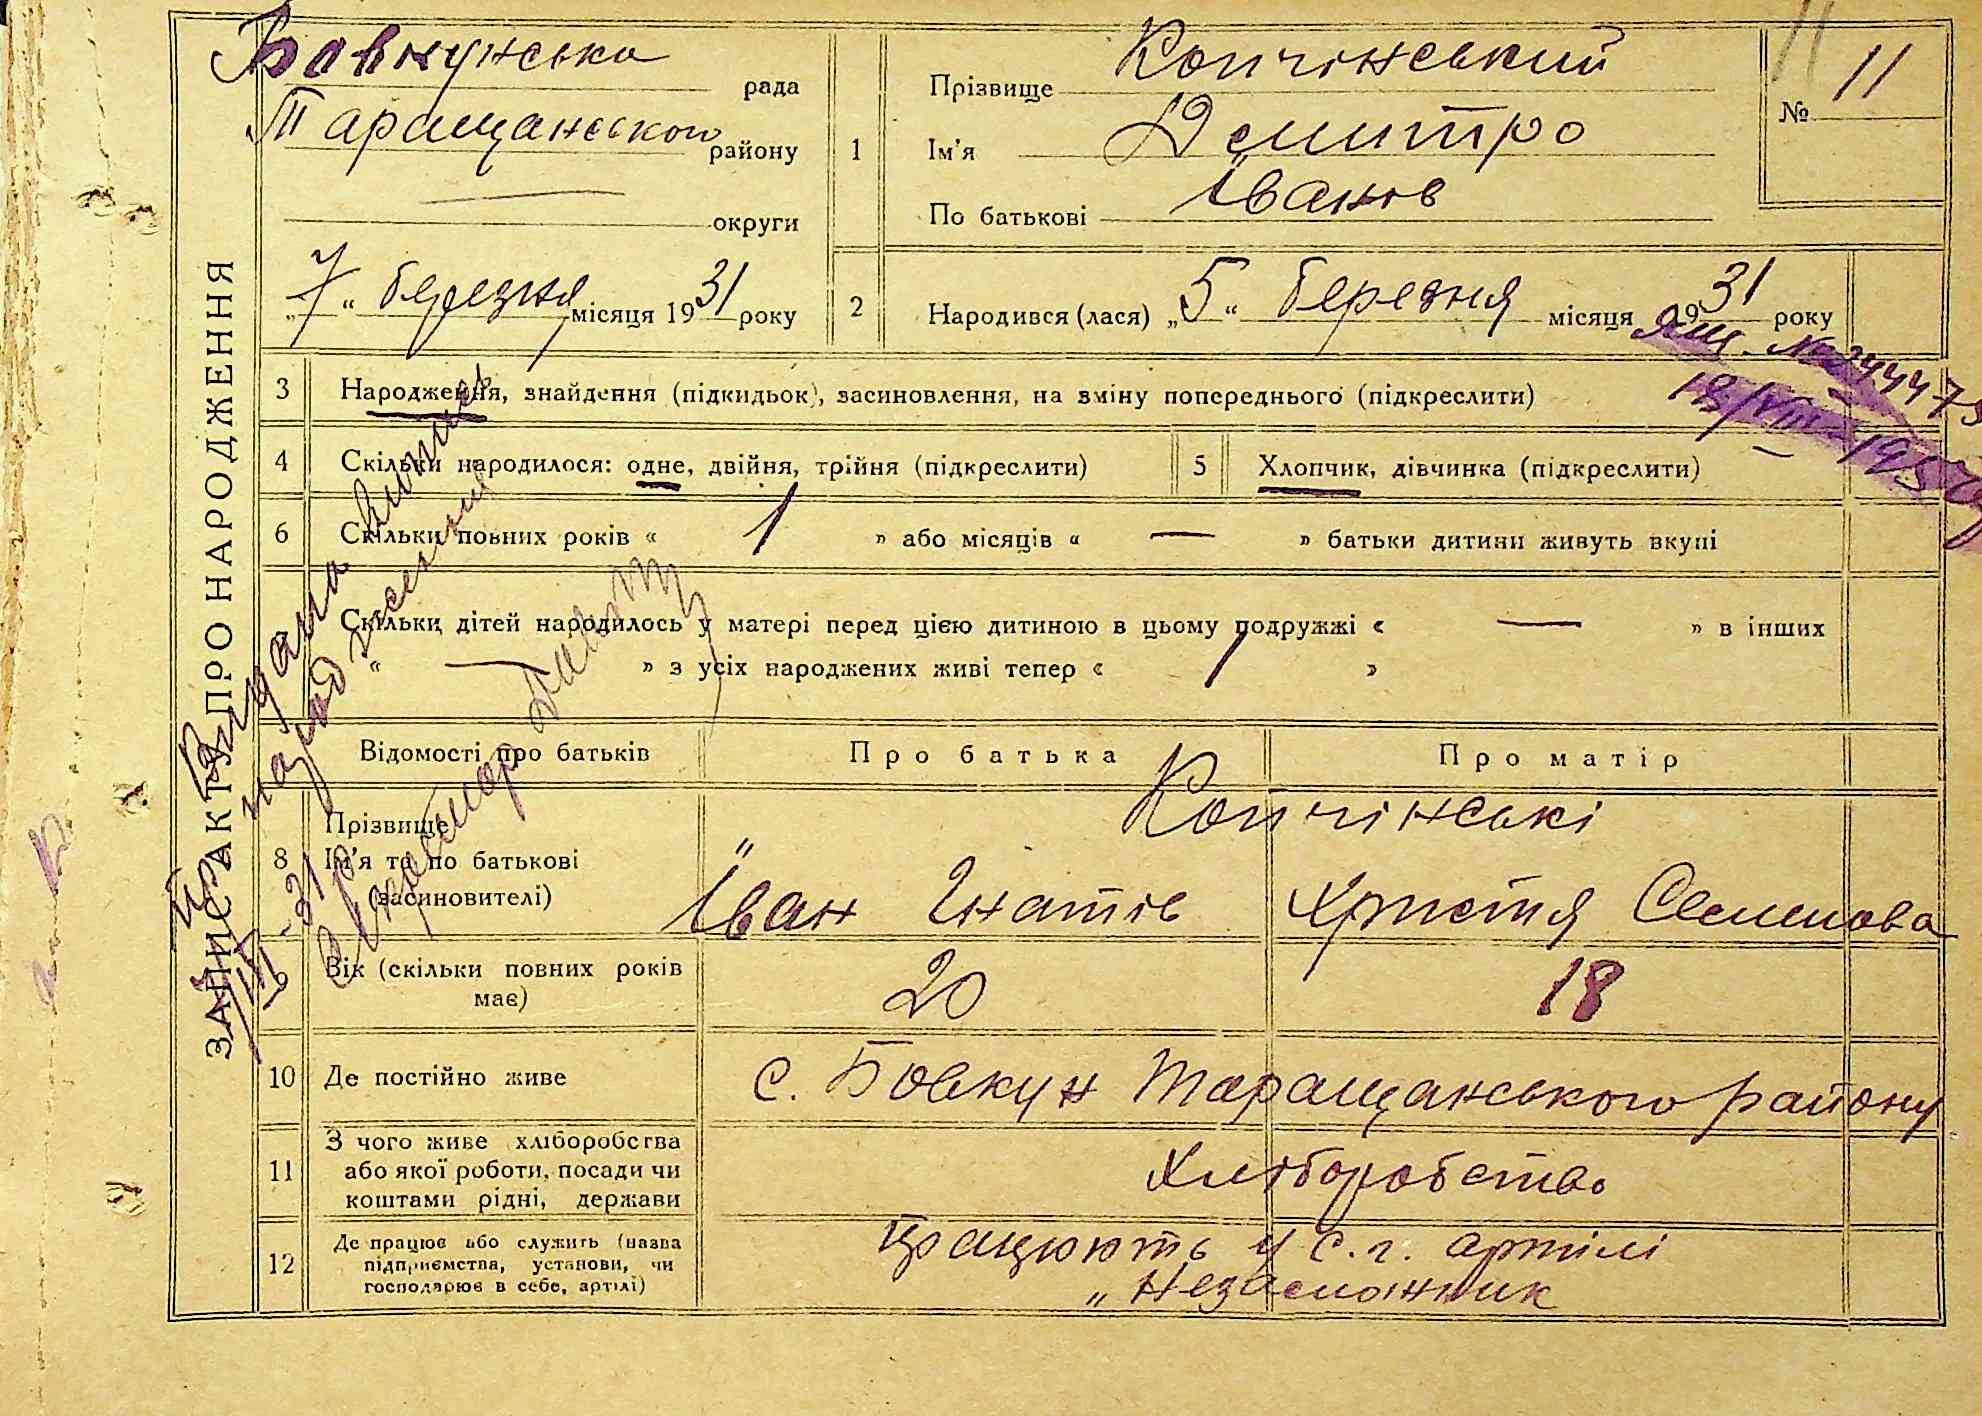 ЗАПИС АКТУ ПРО НАРОДЖЕННЯ
Бовкунська рада
Таращанського району
— округи
„7“ березня місяця 1931 року
1
Прізвище Копчінський
Ім'я Дмитро
По батькові Іванов
№ 11
2 Народився (лася) „5“ березня місяця 1931 року
3 Народження, знайдення (підкидьок), засиновлення, на зміну попереднього (підкреслити)
4 Скільки народилося: одне, двійня, трійня (підкреслити)
5 Хлопчик, дівчинка (підкреслити)
6 Скільки повних років « 1 » або місяців « — » батьки дитини живуть вкупі
Скільки дітей народилось у матері перед цією дитиною в цьому подружжі « — » в інших
« — » з усіх народжених живі тепер « 1 »
Відомості про батьків Про батька Про матір
8 Прізвище Копчінські
Ім'я та по батькові
(засиновителі) Іван Гнатів Христя Семенова
9 Вік (скільки повних років має) 20 18
10 Де постійно живе с. Бовкун Таращанського району
11 З чого живе хліборобства
або якої роботи, посади чи
коштами рідні, держави Хліборобство
12 Де працює або служить (назва
підприємства, установи, чи
господарює в себе, артілі)
працюють у с.г. артілі
„Незаможник
Видана виписка
Секретар
19/VIII-195